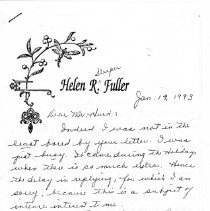 Draper
Helen R. Fuller
Jan. 19, 1993
Dear Mr. Hurd:
Indeed I was not in the
least bored by your letter. I was
just busy. It came during the Holiday,
when there is so much extra. Hence
the delay in replying, for which I am
sorry, because this is a subject of
intense interest to me.